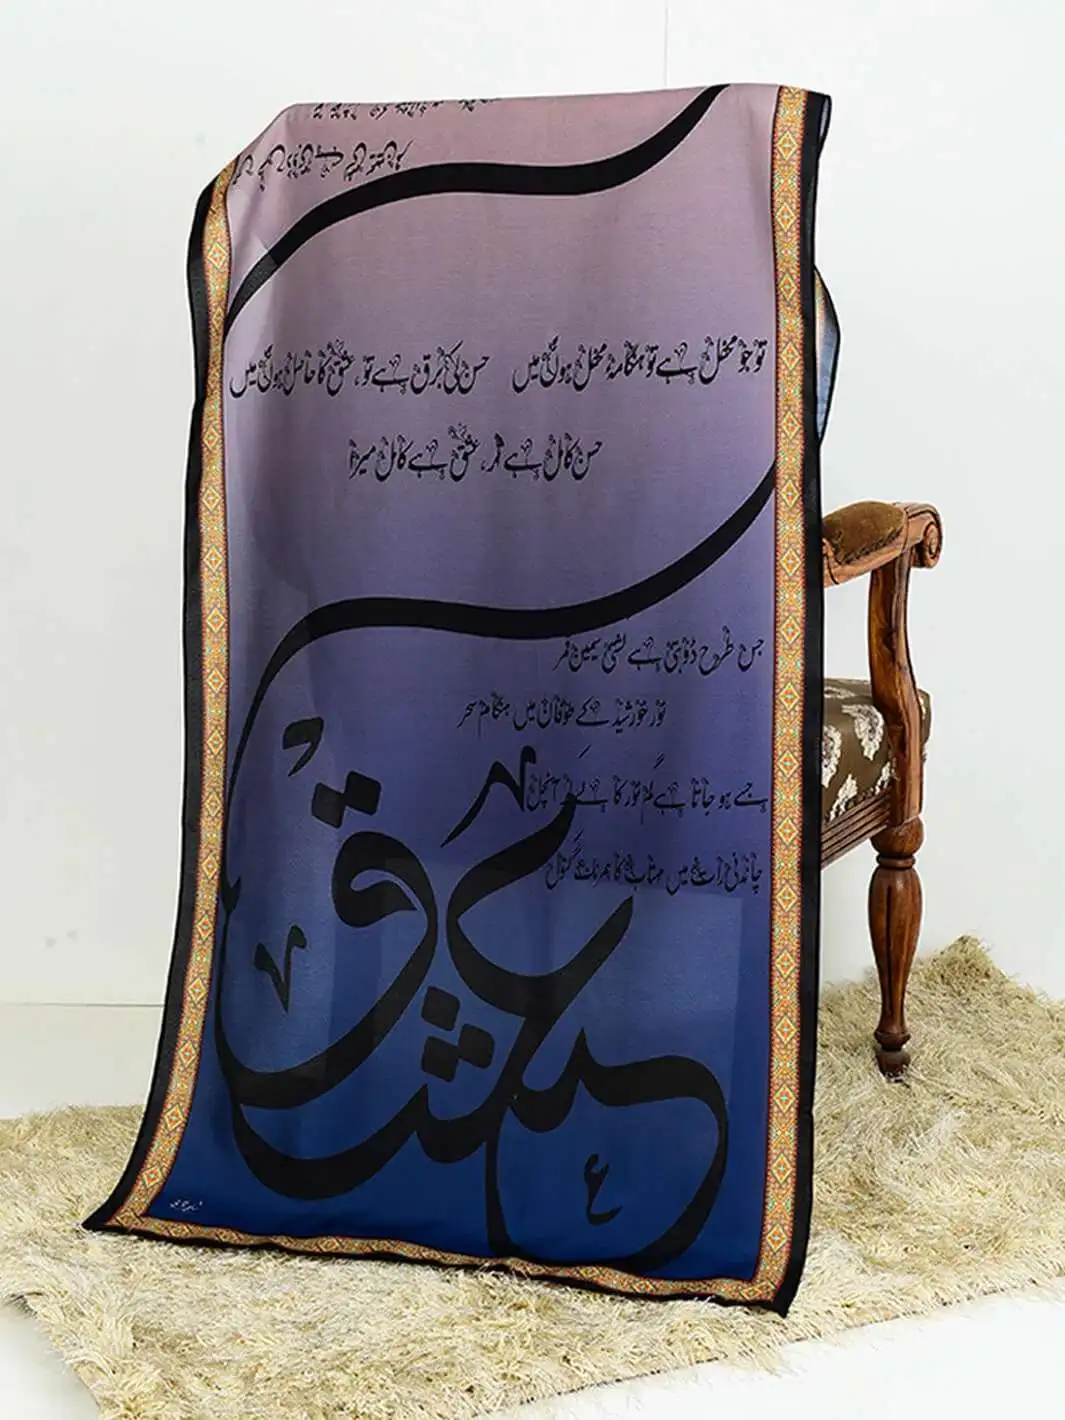 تو جو محفل ہے تو ہنگامۂ محفل ہوں میں
حسن کی برق ہے تو، عشق کا حاصل ہوں میں
حسن کامل ہے ترا، عشق ہے کامل میرا
جس طرح ڈوبتی ہے کشتی سیمین قمر
نور خورشید کے طوفان میں ہنگام سحر
جیسے ہو جاتا ہے گم نور کا لے کر آنچل
چاندنی رات میں مہتاب کا ہم رنگ کنول
عشق